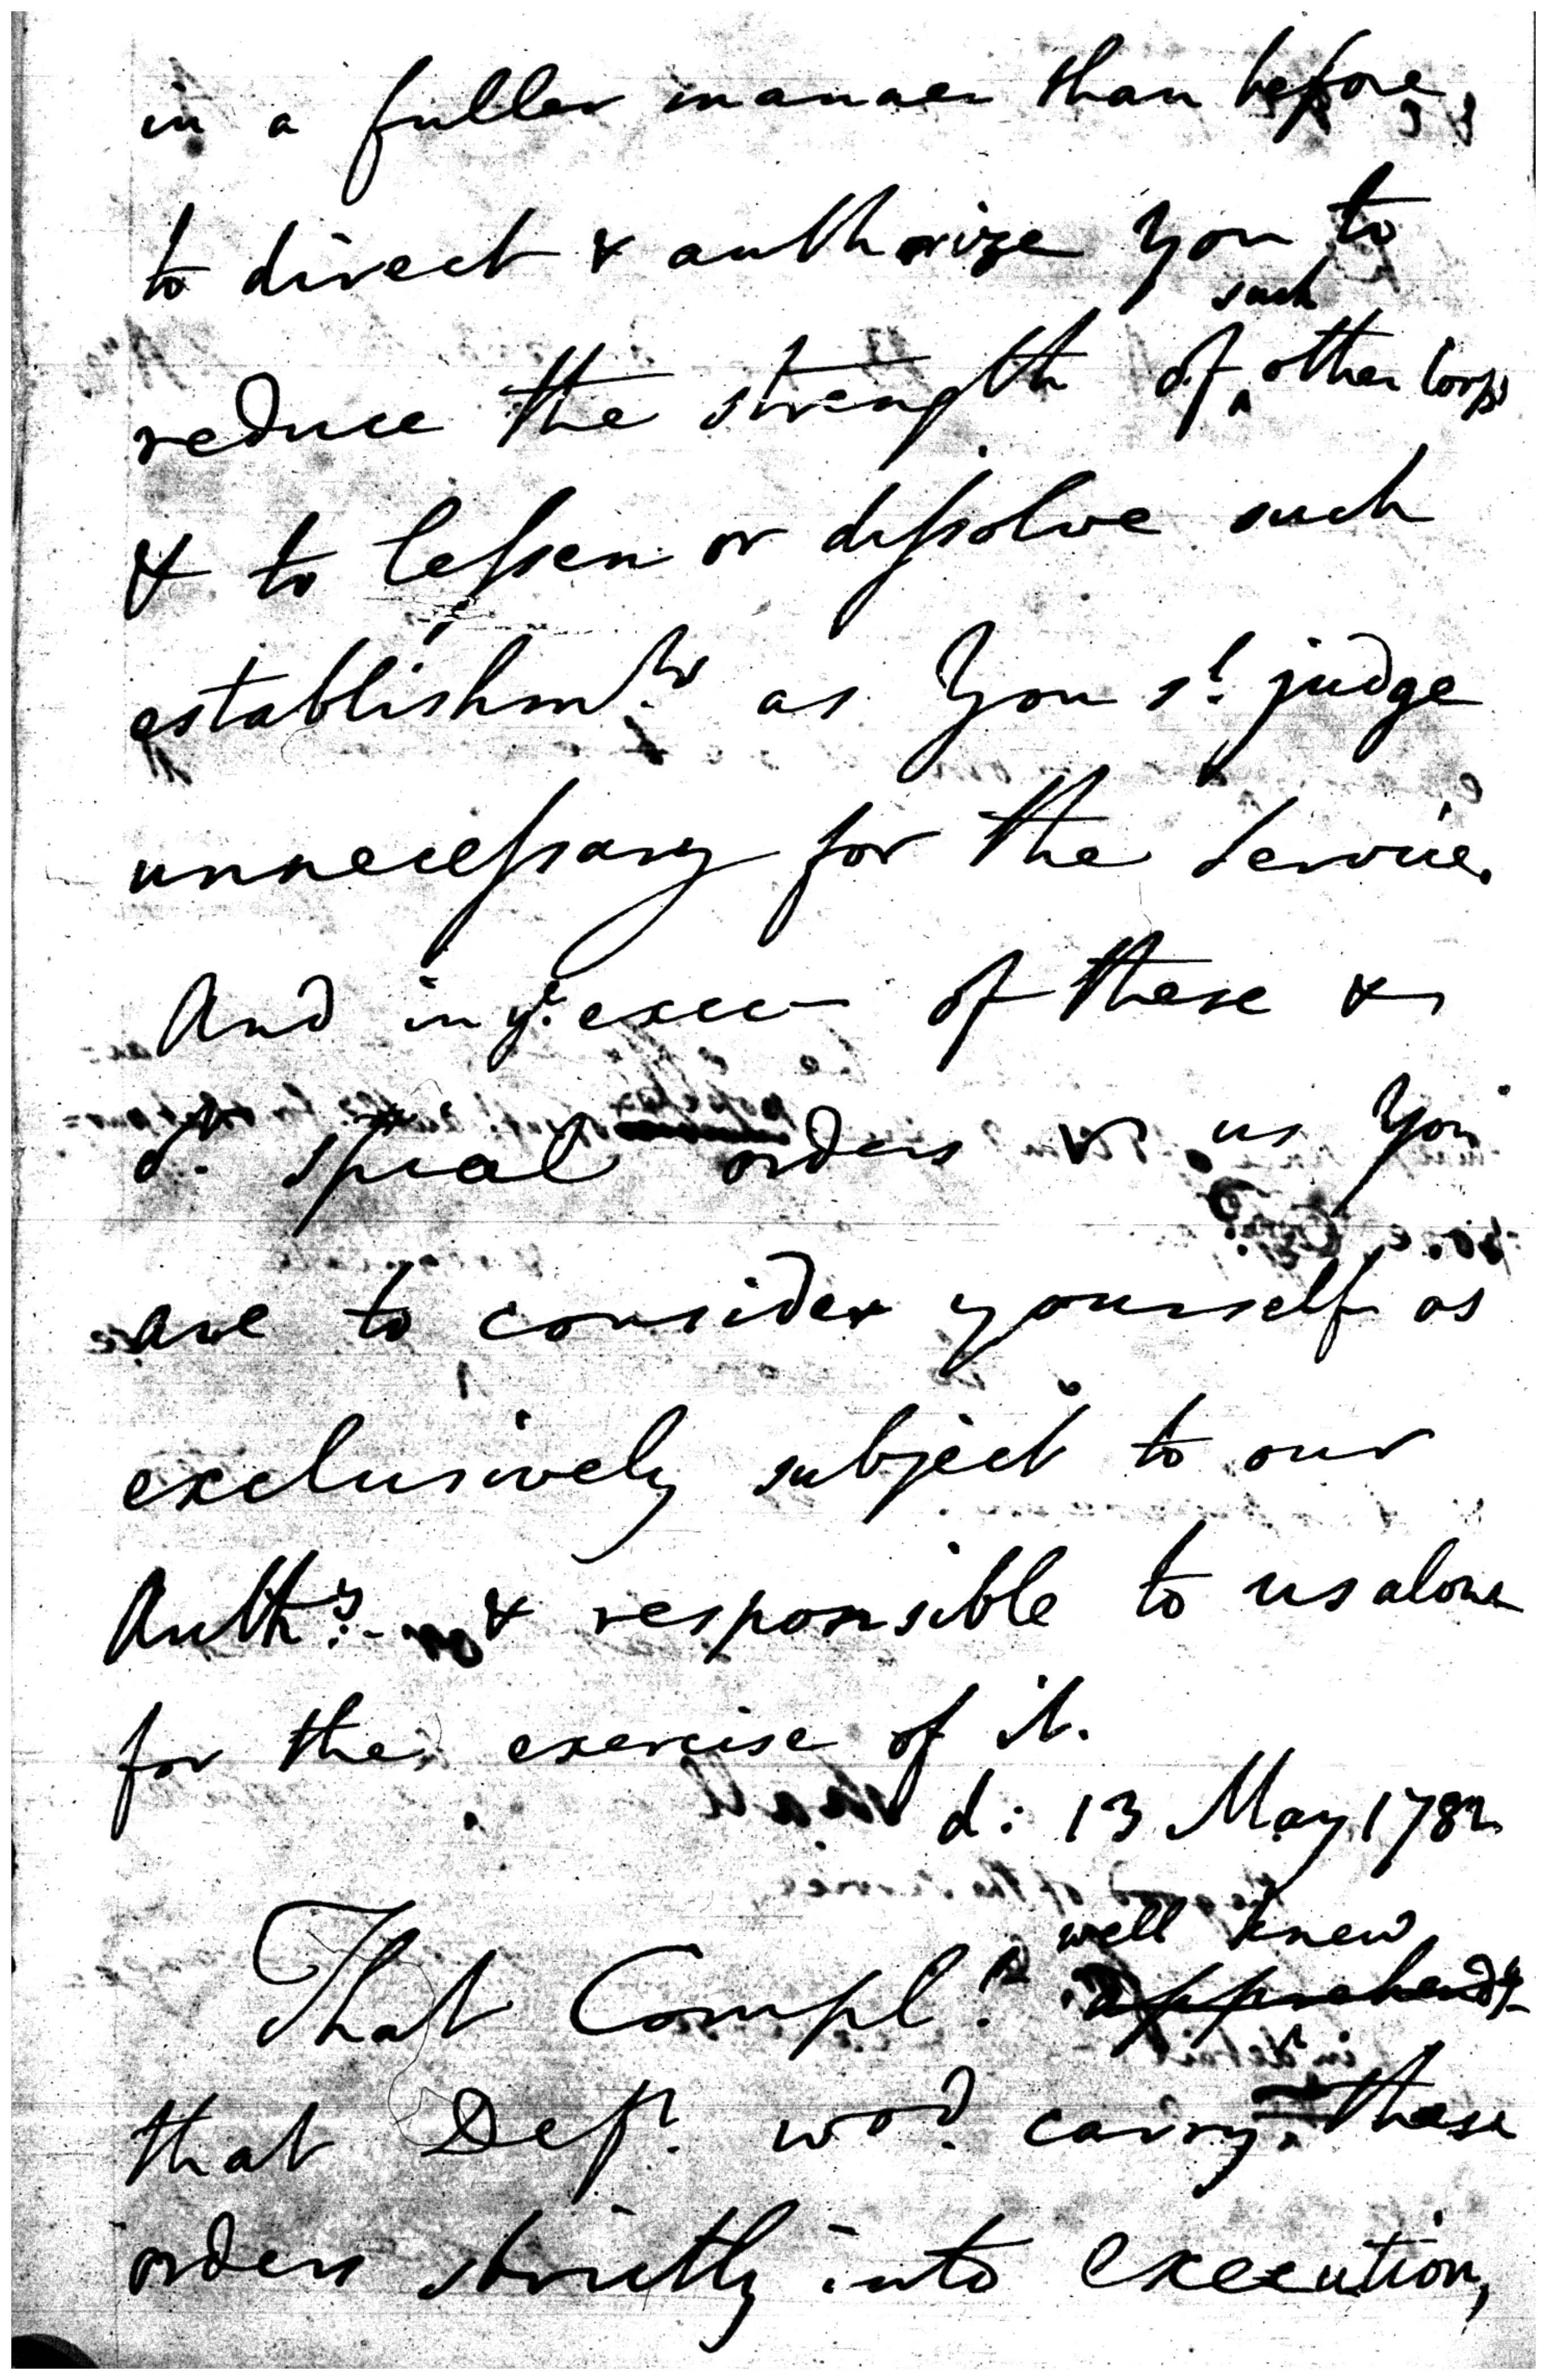 in a fuller manner than before
to direct & authorize you to
such
reduce the strength of ^ other Corps
& to lessen or dissolve such
establishm.ts as You s.d judge
unnecessary for the Service.
And in y.e execn of these &
o.r special orders us You
are to consider yourself as
exclusively subject to our
Auth.y - & responsible to us alone
for the exercise of it.
d: 13 May 1782
well knew
That Compl.t apprehend.d
that Def.t wo.d carry these
orders strictly into execution,